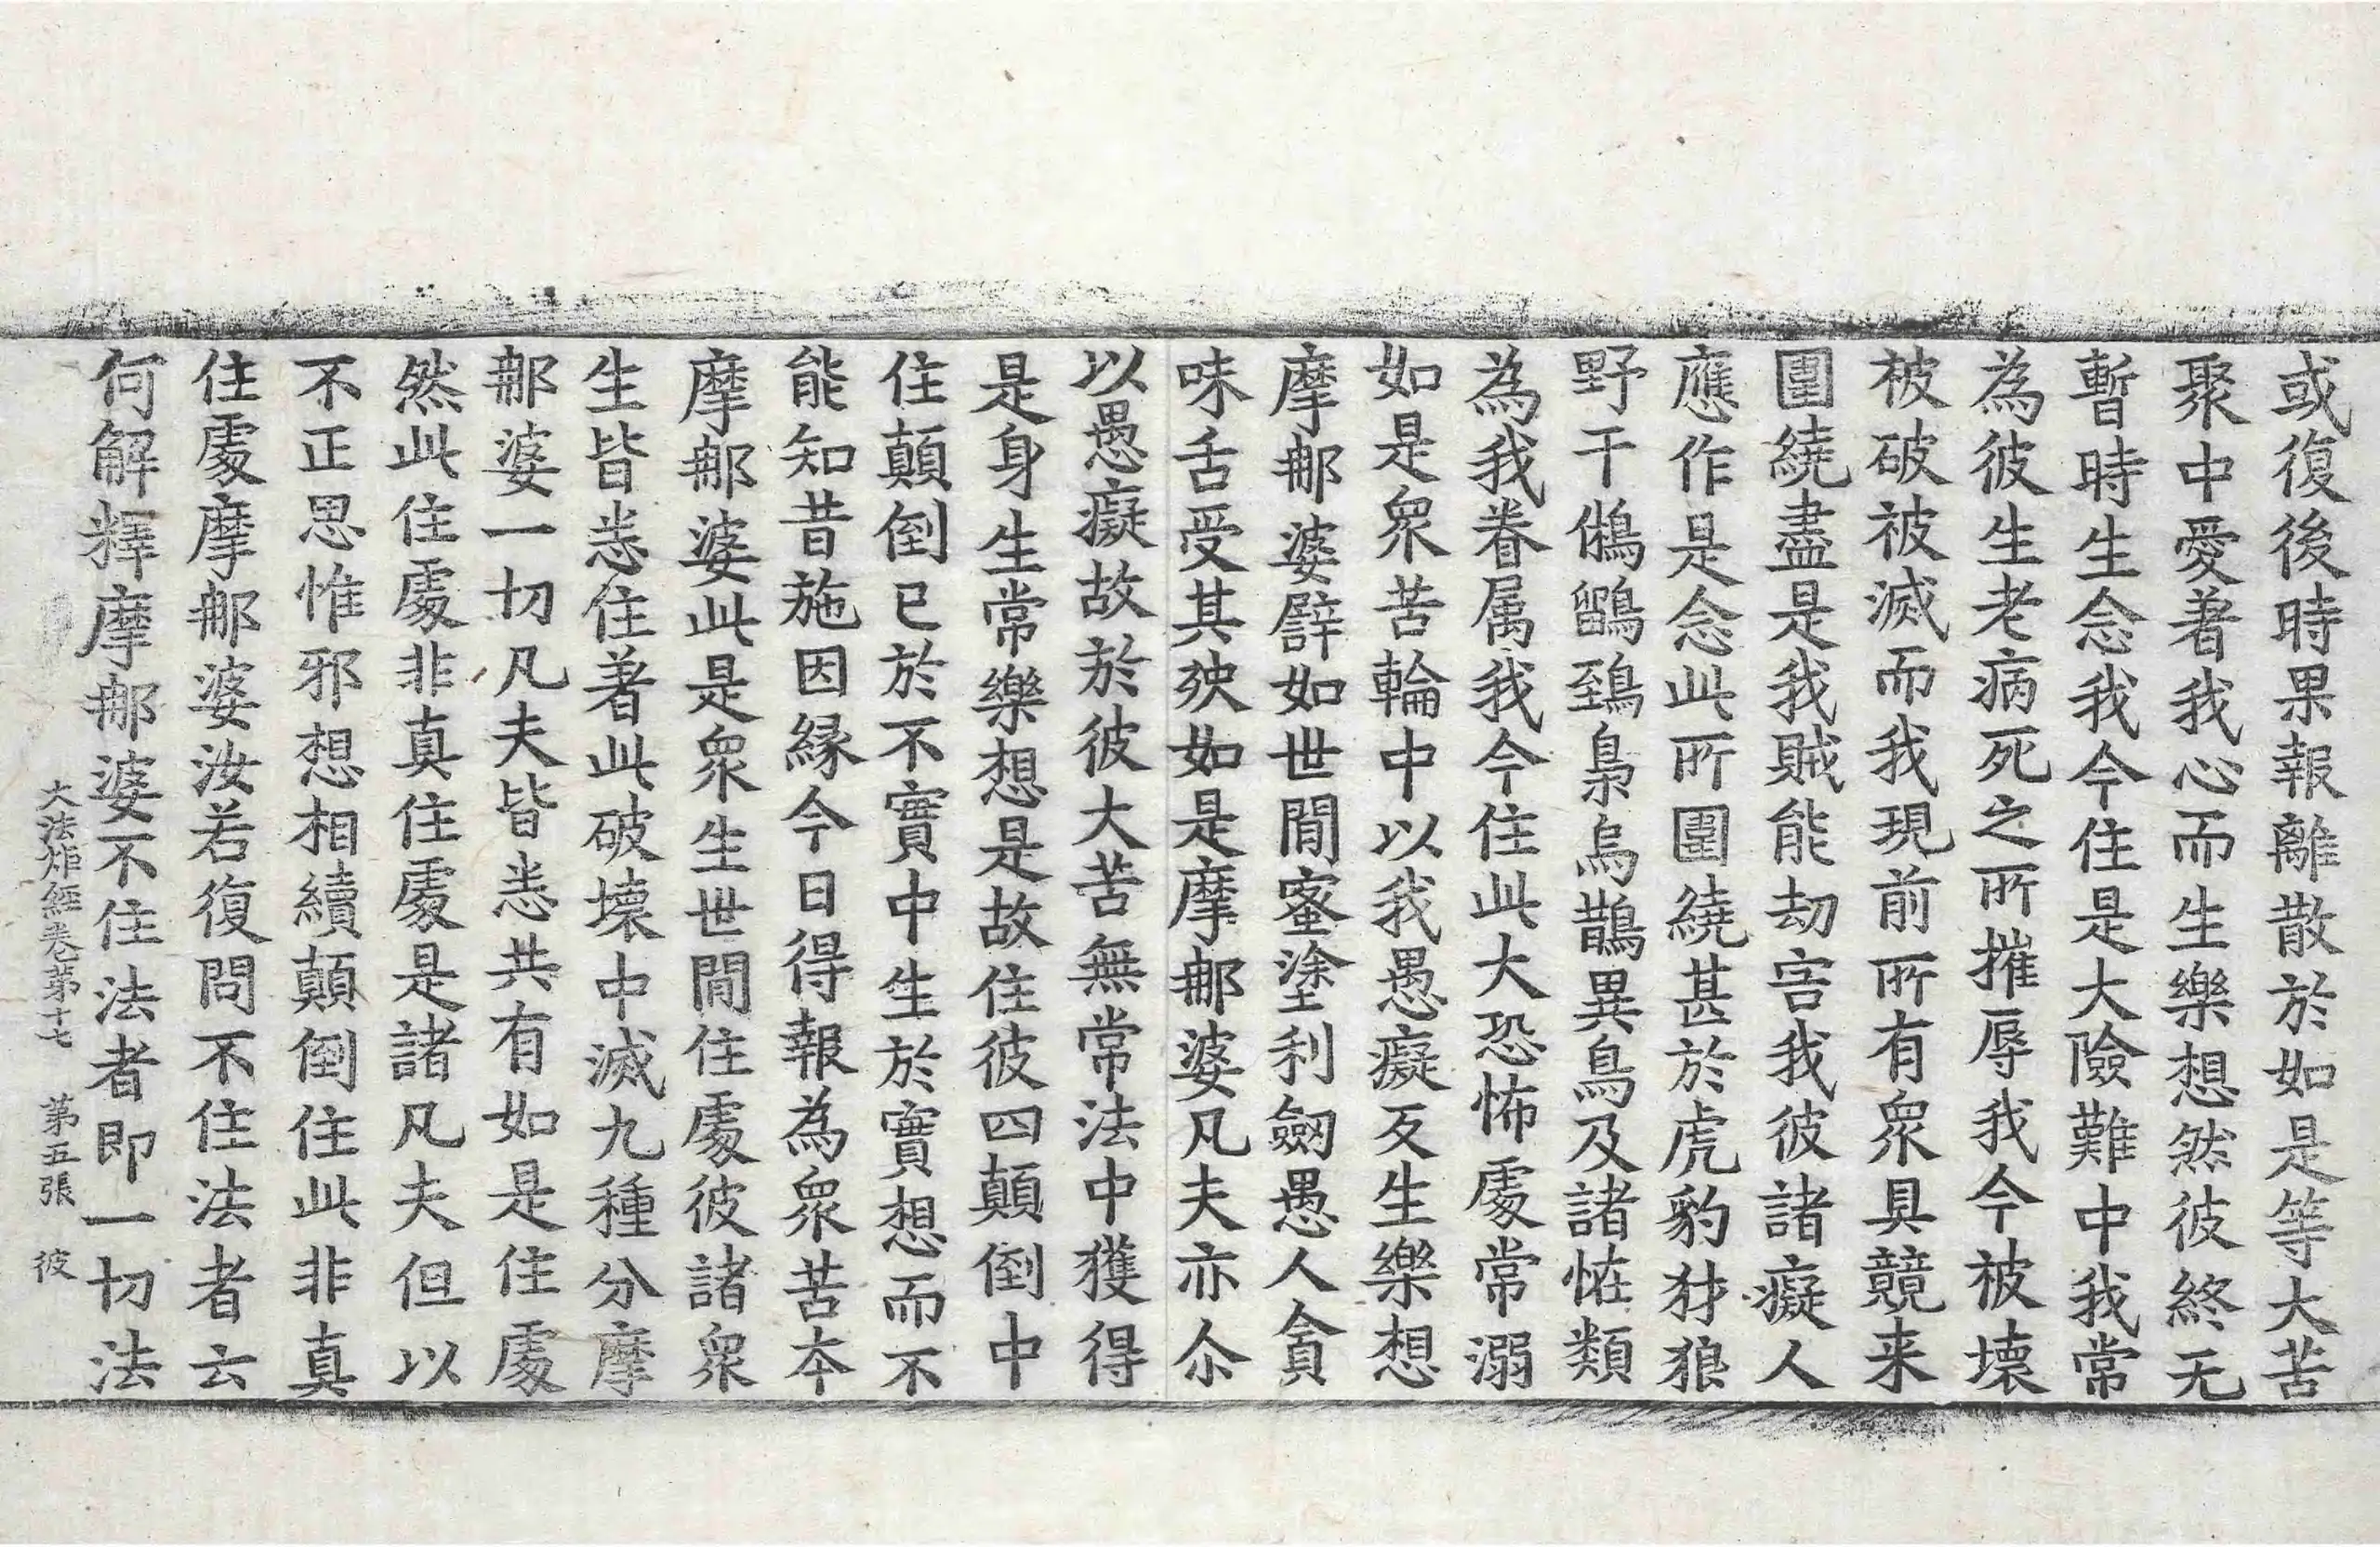 或復後時果報離散於如是等大苦
聚中愛著我心而生樂想然彼終无
暫時生念我今住是大險難中我常
為彼生老病死之所摧辱我今被壞
被破被滅而我現前所有眾具競来
圍繞盡是我賊能劫害我彼諸癡人
應作是念此所圍繞甚於虎豹犲狼
野干鵂鶹鵄梟烏鵲異鳥及諸恠類
為我眷属我今住此大恐怖處常溺
如是眾苦輪中以我愚癡反生樂想
摩那婆譬如世間蜜塗利劒愚人貪
味舌受其殃如是摩那婆凡夫亦尒
以愚癡故於彼大苦無常法中獲得
是身生常樂想是故住彼四顛倒中
住顛倒已於不實中生於實想而不
能知昔施因縁今日得報為眾苦本
摩那婆此是眾生世間住處彼諸眾
生皆悉住著此破壞中滅九種分摩
那婆一切凡夫皆悉共有如是住處
然此住處非真住處是諸凡夫但以
不正思惟邪想相續顛倒住此非真
住處摩那婆汝若復問不住法者云
何解釋摩那婆不住法者即一切法
大法炬經卷第十七 第五張 彼